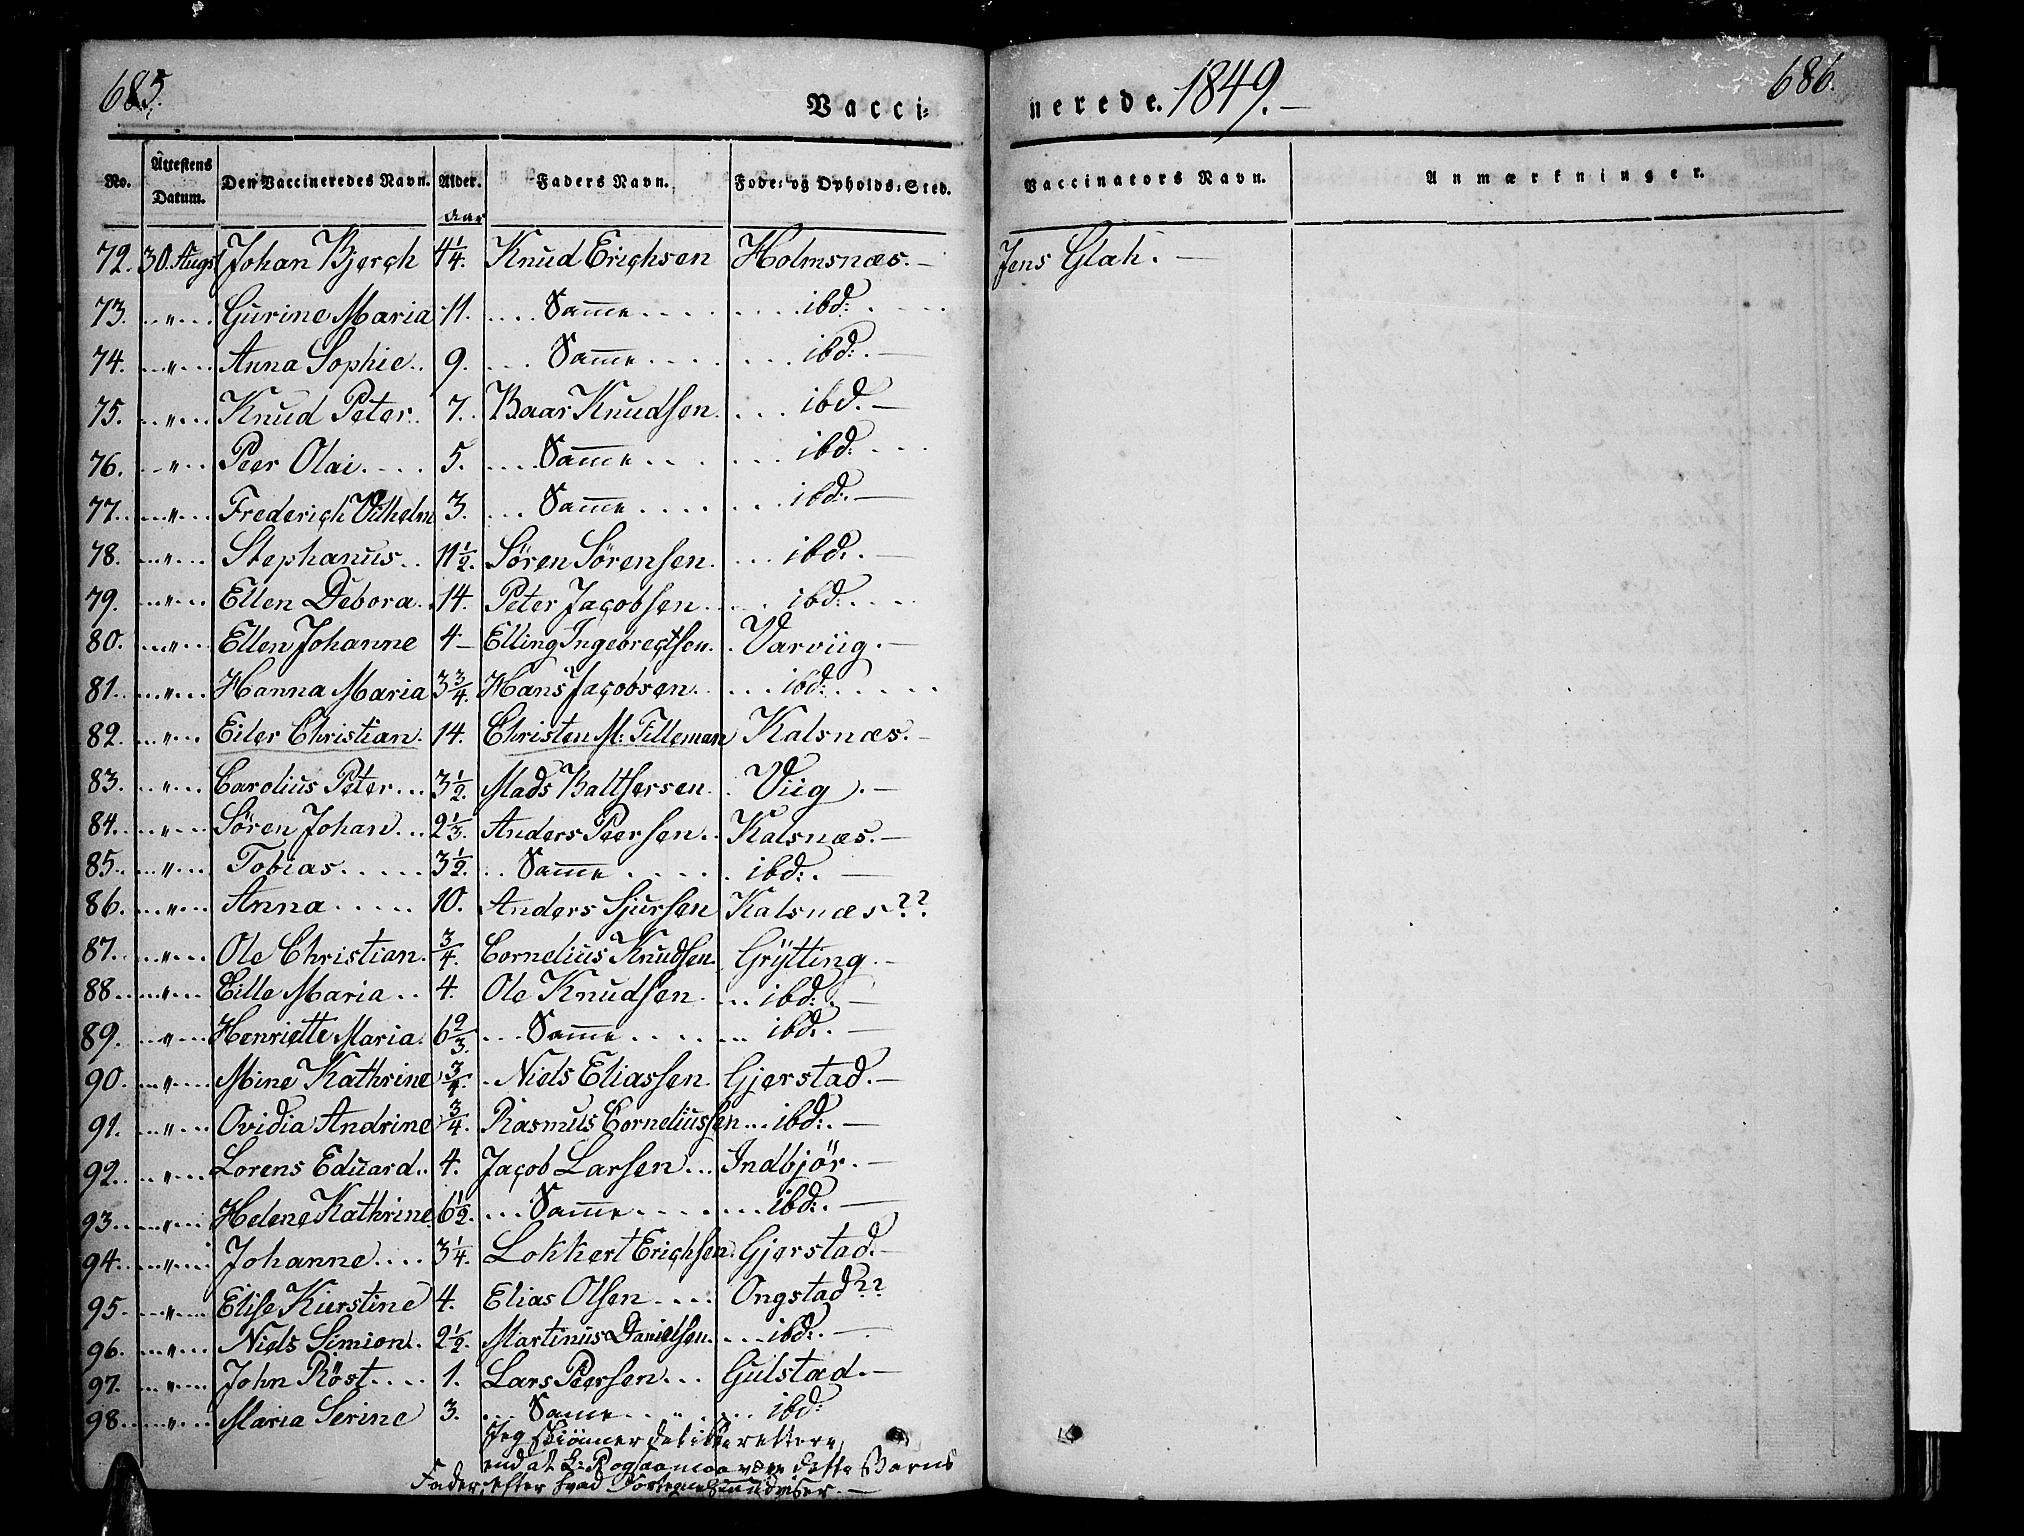 685.
Vacci-
nerede. 1849. —
686.
No. Attestens Datum. Den Vaccineredes Navn. Alder. Faders Navn. Føde- og Opholds-Sted. Vaccinators Navn. Anmærkninger.
Aar
72. 30. Augst Johan Bjerch 4 1/4. Knud Erichsen Holmsnæs. — Jens Glah. —
73. " Gurine Maria 11. Samme ibd:
74. " Anna Sophie 9. Samme ibd: —
75. " Knud Peter 7. Baar Knudsen ibd. —
76. " Peer Olai 5. Samme ibd:
77. " Frederich Vilhelm 3. Samme ibd: —
78. " Stephanus 11 1/2. Sören Sörensen ibd: —
79. " Ellen Debora 14. Peter Jacobsen ibd:
80. " Ellen Johanne 4 — Elling Ingebregtsen Varviig. —
81. " Hanna Maria 3 3/4. Hans Jacobsen ibd:
82. " Eiler Christian 14. Christen M: Tilleman Kalsnæs. —
83. " Carolius Peter 3 1/2. Mads Balthersen Viig. —
84. " Sören Johan 2 1/3. Anders Peersen Kalsnæs. —
85. " Tobias 3 1/2. Samme ibd: —
86. " Anna 10. Anders Sjursen Kalsnæs??
87. " Ole Christian 3/4 Cornelius Knudsen Grÿtting. —
88. " Cille Maria 4. Ole Knudsen ibd: —
89. " Henriette Maria 6 2/3. Samme ibd. —
90. " Mine Kathrine 3/4. Niels Eliassen Gjerstad. —
91. " Ovidia Andrine 3/4 Rasmus Corneliussen ibd: —
92. " Lorens Eduard 4. Jacob Larsen Indbjör. —
93. " Helene Kathrine 6 1/2. Samme ibd. —
94. " Johanne 3 1/4. Lokkert Erichsen Gjerstad. —
95. " Elise Kierstine 4. Elias Olsen Ongstad??
96. " Niels Simion 2 1/2. Martinus Danielsen ibd: —
97. " John Röst 1. Lars Peersen Gulstad. —
98. " Maria Serine 3. Samme ibd:
Jeg skiönner det ikke rettere,
end at L: P. ogsaa maa være dette Barns
Fader, efter hvad Fortegnelsen udviser. —